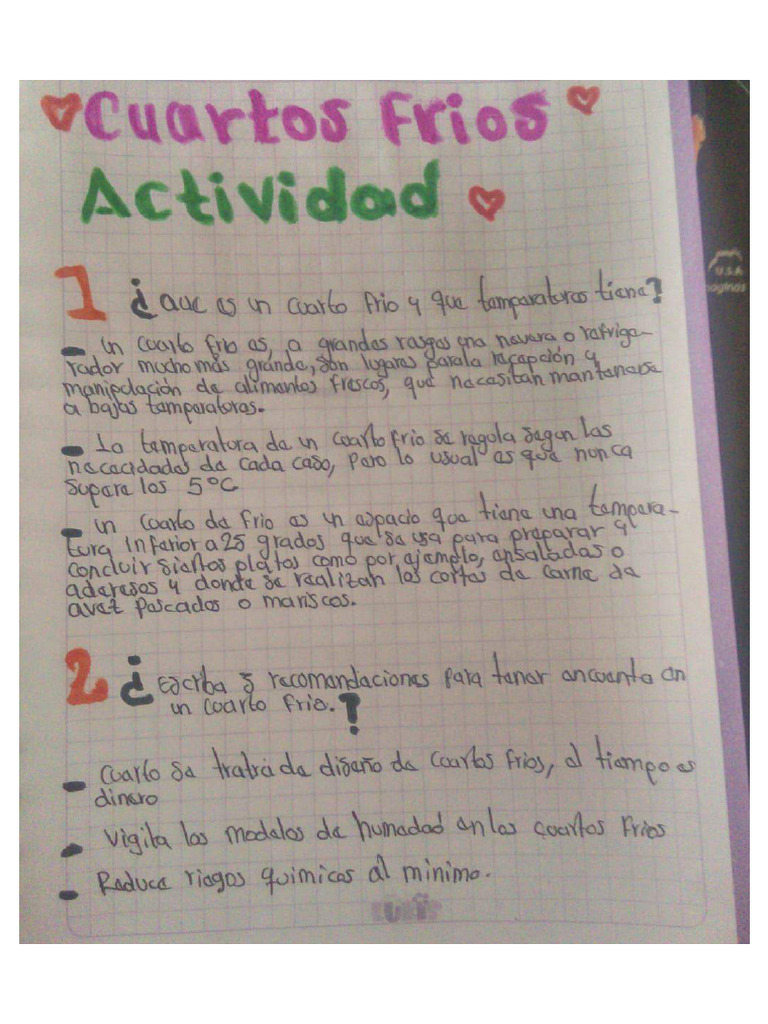 Cuartos Frios
Actividad
1 ¿Que es un cuarto frio y que temperaturas tiene?
- Un cuarto frio es, a grandes rasgos una nevera o refrige-
rador mucho más grande, son lugares para la recepción y
manipulación de alimentos frescos, que necesitan mantenerse
a bajas temperaturas.
- La temperatura de un cuarto frio se regula segun las
nececidades de cada caso, pero lo usual es que nunca
supere los 5°C
- un cuarto de frio es un espacio que tiene una tempera-
tura inferior a 25 grados que se usa para preparar y
concluir siertos platos como por ejemplo, ensaladas o
aderesos y donde se realizan los cortes de carne de
avez pescados o mariscos.
2 ¿Escrba 5 recomendaciones para tener encuenta en
un cuarto frio.?
- Cuarlo se tratra de diseño de cuartos frios, el tiempo es
dinero
- Vigila los modelos de humedad en los cuartos frios
- Reduce riegos quimicos al minimo.
U.S.A
paginas